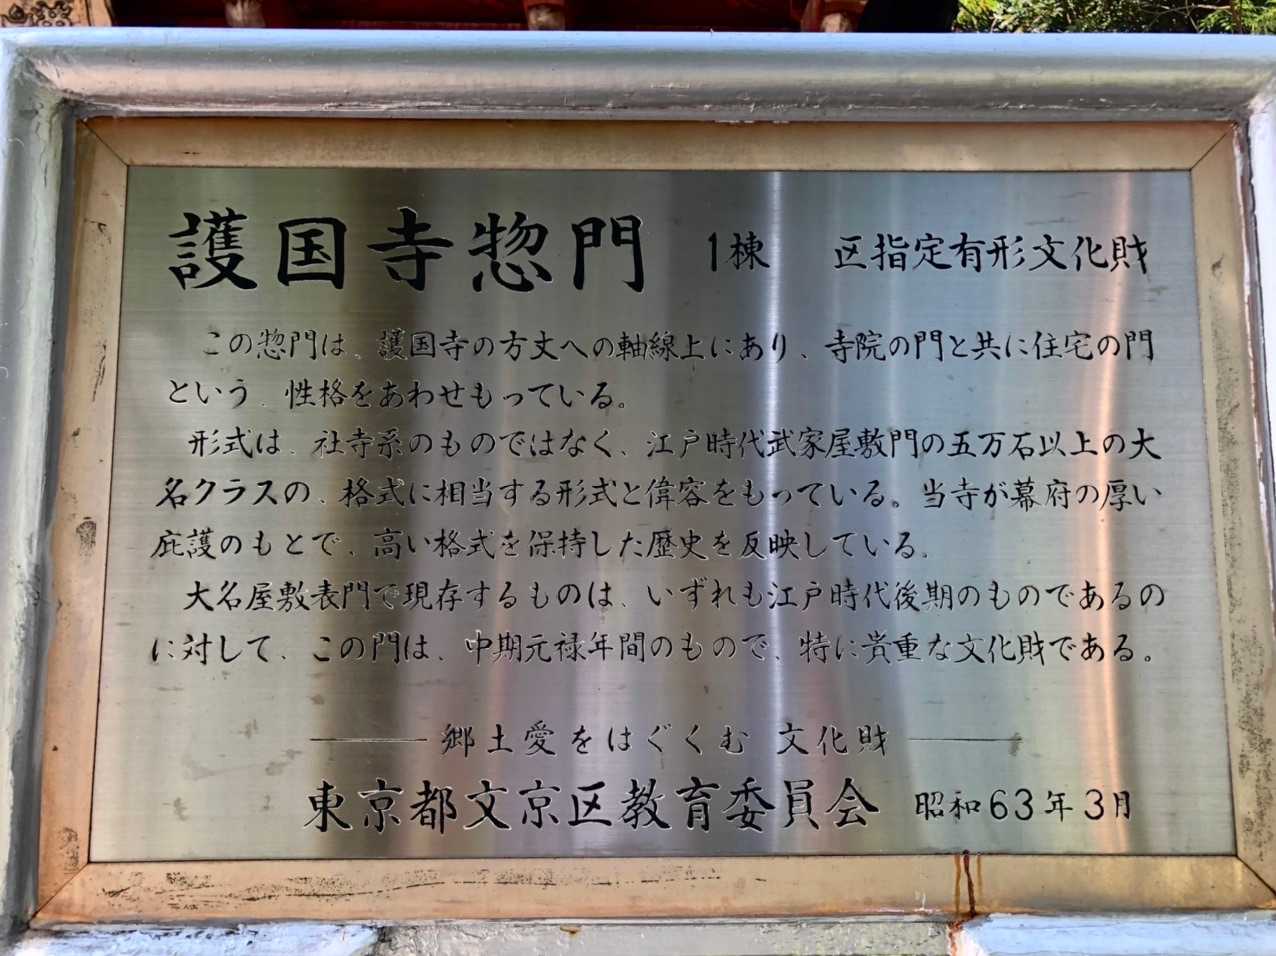 護国寺惣門 1棟 区指定有形文化財
この惣門は、護国寺の方丈への軸線上にあり、寺院の門と共に住宅の門
という、性格をあわせもっている。
形式は、社寺系のものではなく、江戸時代武家屋敷門の五万石以上の大
名クラスの、格式に相当する形式と偉容をもっている。当寺が幕府の厚い
庇護のもとで、高い格式を保持した歴史を反映している。
大名屋敷表門で現存するものは、いずれも江戸時代後期のものであるの
に対して、この門は、中期元禄年間のもので、特に貴重な文化財である。
郷土愛をはぐくむ 文化財
東京都文京区教育委員会 昭和63年3月